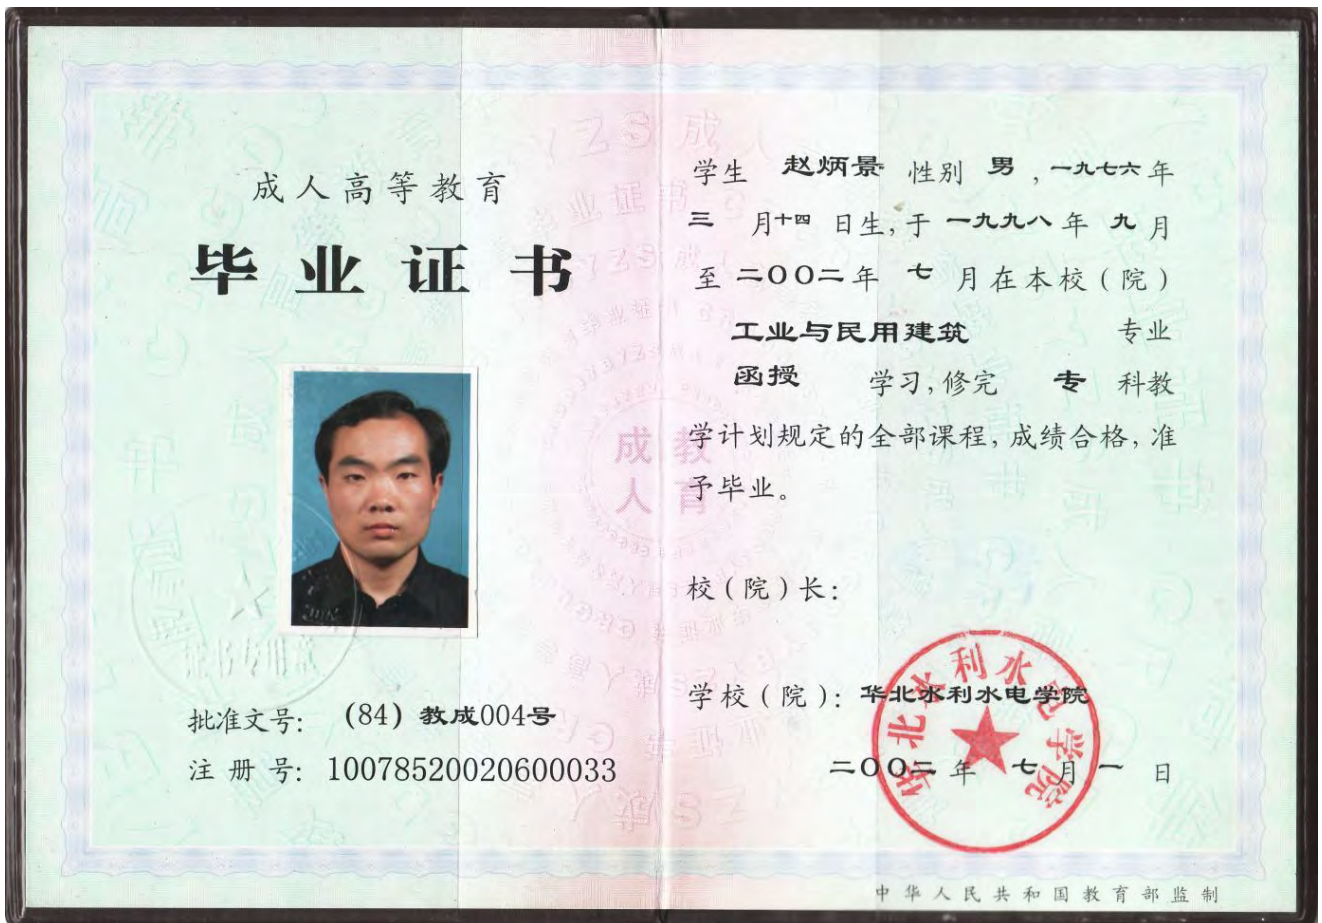 成人高等教育
毕业证书
证书专用章
批准文号: (84) 教成004号
注 册 号: 10078520020600033
成 教
人 育
学生 赵炳景 性别 男 , 一九七六年
三 月十四 日生, 于 一九九八年 九月
至 二〇〇二年 七 月在本校 ( 院 )
工业与民用建筑 专业
函授 学习, 修完 专 科教
学计划规定的全部课程, 成绩合格, 准
予毕业。
校 ( 院 ) 长:
学校 ( 院 ): 华北水利水电学院
华北水利水电学院
二〇〇二 年 七 月 一 日
中华人民共和国教育部监制